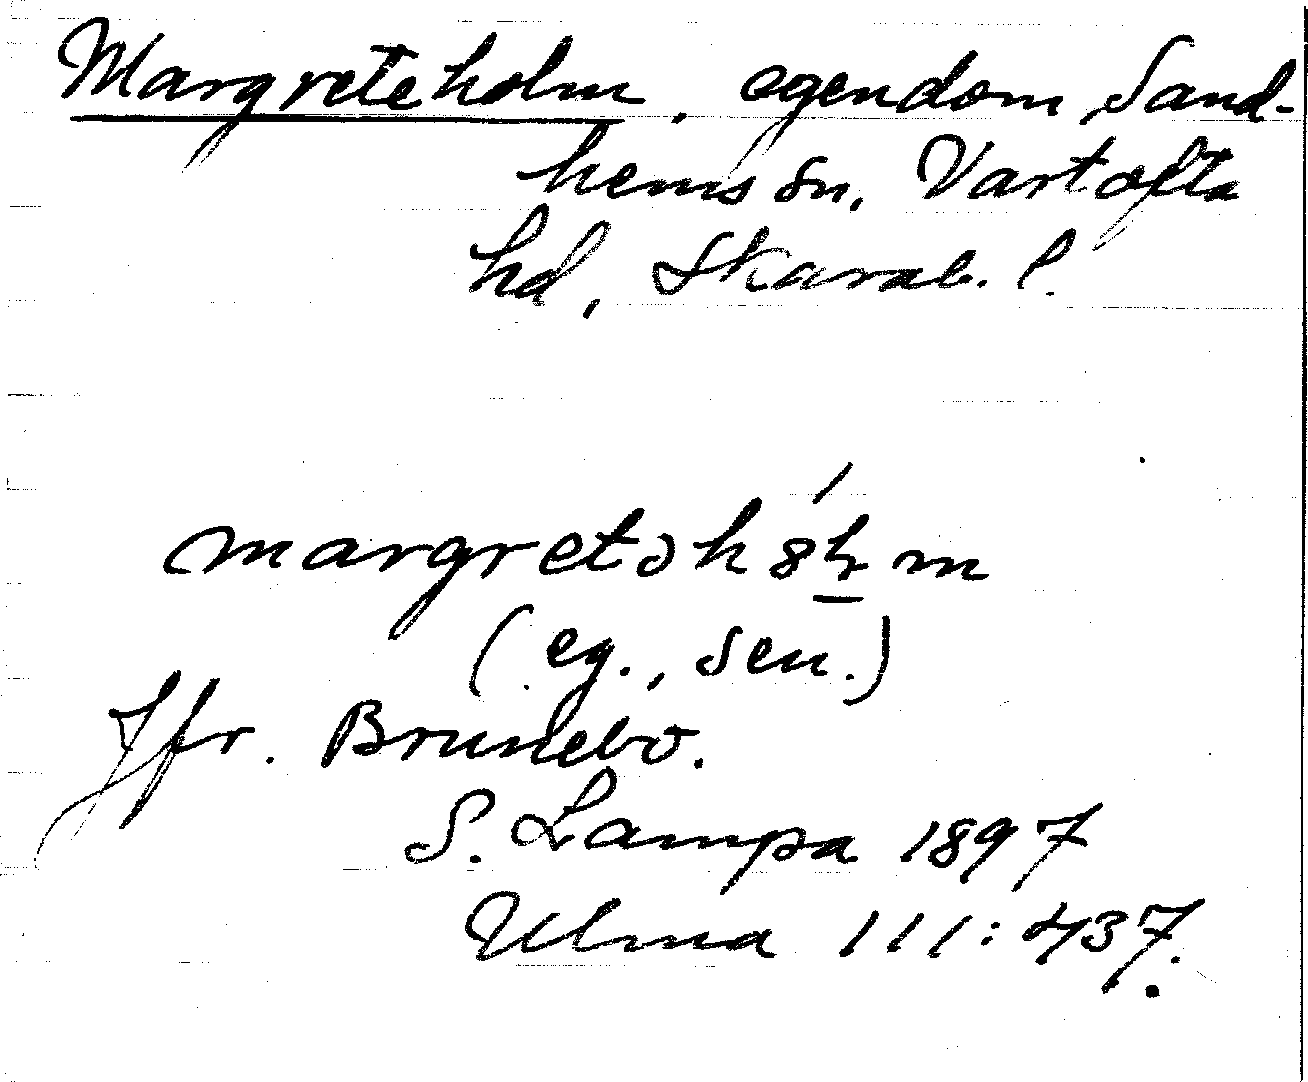 Margreteholm, egendom Sand-
hems sn, Vartofta
hd, Skarab. l.
margretəh8ɫm
(eg., sen.)
Jfr. Brunebo.
S. Lampa 1897
Ulma 111:437.